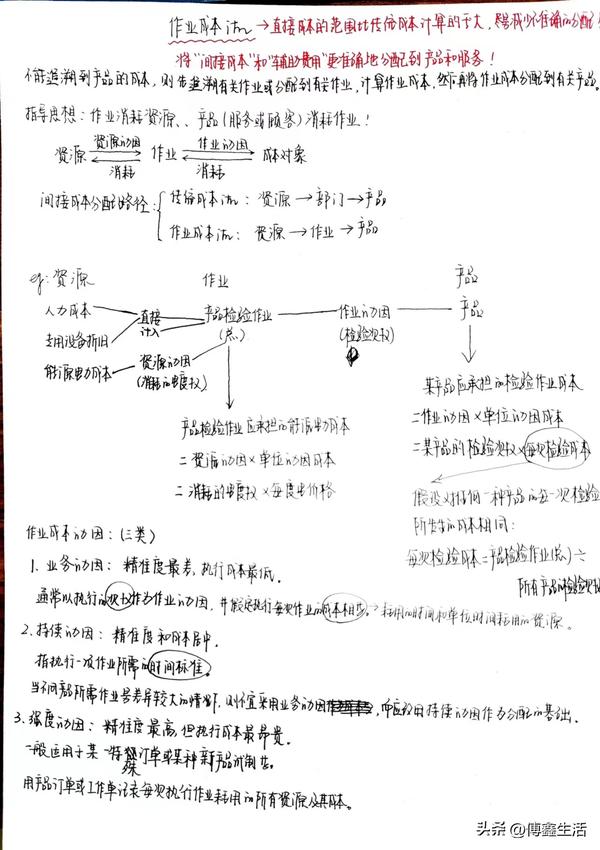 作业成本法 → 直接成本的范围比传统成本计算的要大，尽量减少不准确的分配！
将"间接成本"和"辅助费用"更准确地分配到产品和服务！
不能追溯到产品的成本，则先追溯有关作业或分配到有关作业，计算作业成本，然后再将作业成本分配到有关产品。
指导思想：作业消耗资源、产品(服务或顾客)消耗作业！
资源 资源动因 消耗 作业 作业动因 消耗 成本对象
间接成本分配路径：
传统成本法：资源 → 部门 → 产品
作业成本法：资源 → 作业 → 产品
eg: 资源 作业 产品
人力成本 直接计入 产品检验作业(总) 作业动因(检验次数) 产品
专用设备折旧
能源电力成本 资源动因(消耗的电度数)
产品检验作业应承担的能源电力成本
=资源动因×单位动因成本
=消耗的电度数×每度电价格
某产品应承担的检验作业成本
=作业动因×单位动因成本
=某产品的检验次数×每次检验成本
假设对任何一种产品的每一次检验
所发生的成本相同：
每次检验成本=产品检验作业(总)÷
所有产品的检验次数
作业成本动因：(三类)
1. 业务动因：精准度最差，执行成本最低。
通常以执行的次数作为作业动因，并假定执行每次作业的成本相等。→耗用的时间和单位时间耗用的资源。
2. 持续动因：精准度和成本居中。
指执行一次作业所需的时间标准。
当不同产品所需作业量差异较大的情况下，则不宜采用业务动因，而应改用持续动因作为分配的基础。
3. 强度动因：精准度最高，但执行成本最昂贵。
一般适用于某一特殊订单或某种新产品试制等。
用产品订单或工作单记录每次执行作业耗用的所有资源及其成本。
头条 @傅鑫生活